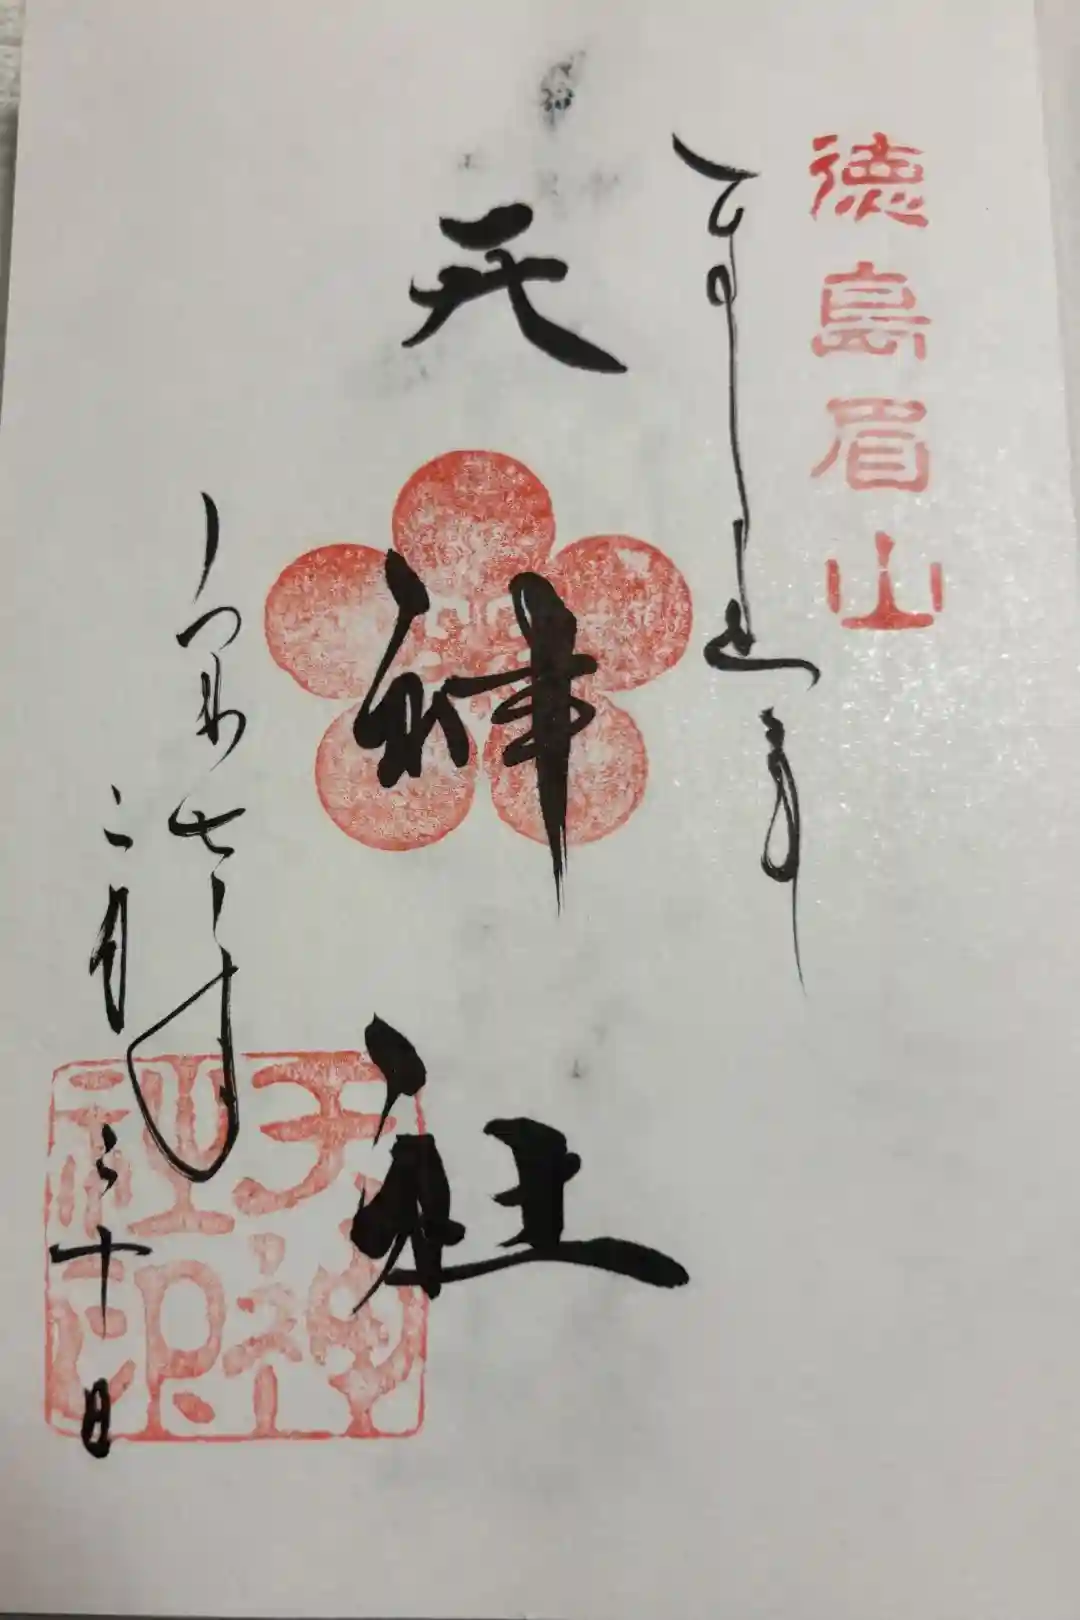 徳島眉山
天神社
令和七年
二月二十日
天神
社印